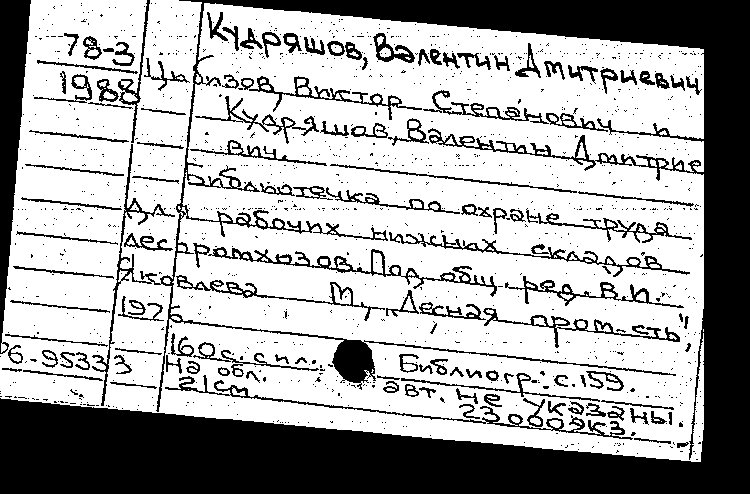 Кудряшов, Валентин Дмитриевич
78-3
1988
Цыбизов, Виктор Степанович и
Кудряшов, Валентин Дмитрие
вич.
Библиотечка по охране труда
для рабочих нижних складов
леспромхозов. Под общ. ред. В.И.
Яковлева М., "Лесная пром-сть",
1976.
76-95333
160 с. с ил. Библиогр.: с.159.
На обл. авт. не указаны.
21 см. 23000 экз.